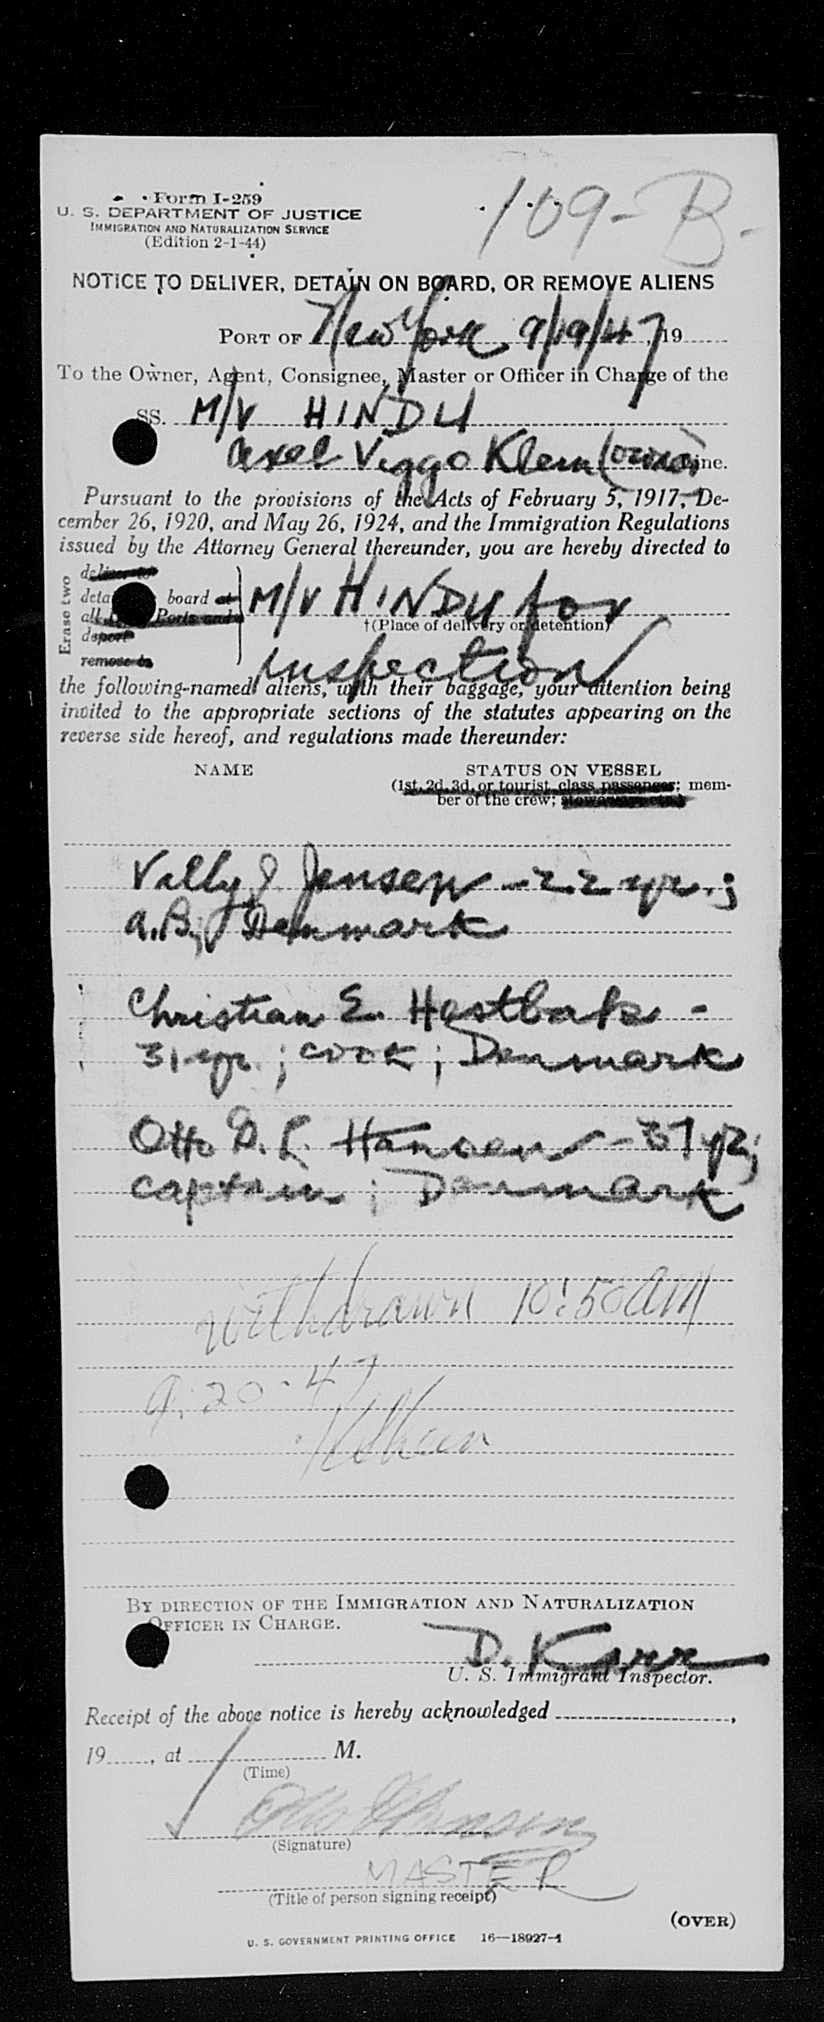 Form I-259
109-B-
U. S. DEPARTMENT OF JUSTICE
IMMIGRATION AND NATURALIZATION SERVICE
(Edition 2-1-44)
NOTICE TO DELIVER, DETAIN ON BOARD, OR REMOVE ALIENS
PORT OF New York 9/19/47, 19
To the Owner, Agent, Consignee, Master or Officer in Charge of the
SS. M/V HINDU
Axel Viggo Klem (owner) Line.
Pursuant to the provisions of the Acts of February 5, 1917, De-
cember 26, 1920, and May 26, 1924, and the Immigration Regulations
issued by the Attorney General thereunder, you are hereby directed to
Erase two
deliver to
board at M/V HINDU for
all Ports and
†(Place of delivery or detention)
deport
remove to
inspection
the following-named aliens, with their baggage, your attention being
invited to the appropriate sections of the statutes appearing on the
reverse side hereof, and regulations made thereunder:
NAME STATUS ON VESSEL
(1st, 2d, 3d, or tourist class passenger; mem-
ber of the crew;
Vally J. Jensen - 22 yr.;
A.B.; Denmark
Christian E. Hestbak -
31 yr.; cook; Denmark
Otto D. L. Hansen - 37 yr;
captain; Denmark
Withdrawn 10:50 AM
9-20-47
BY DIRECTION OF THE IMMIGRATION AND NATURALIZATION
OFFICER IN CHARGE.
D. Karr
U. S. Immigrant Inspector.
Receipt of the above notice is hereby acknowledged ,
19 , at M.
(Time)
(Signature)
MASTER
(Title of person signing receipt)
(OVER)
U. S. GOVERNMENT PRINTING OFFICE 16—18927-1